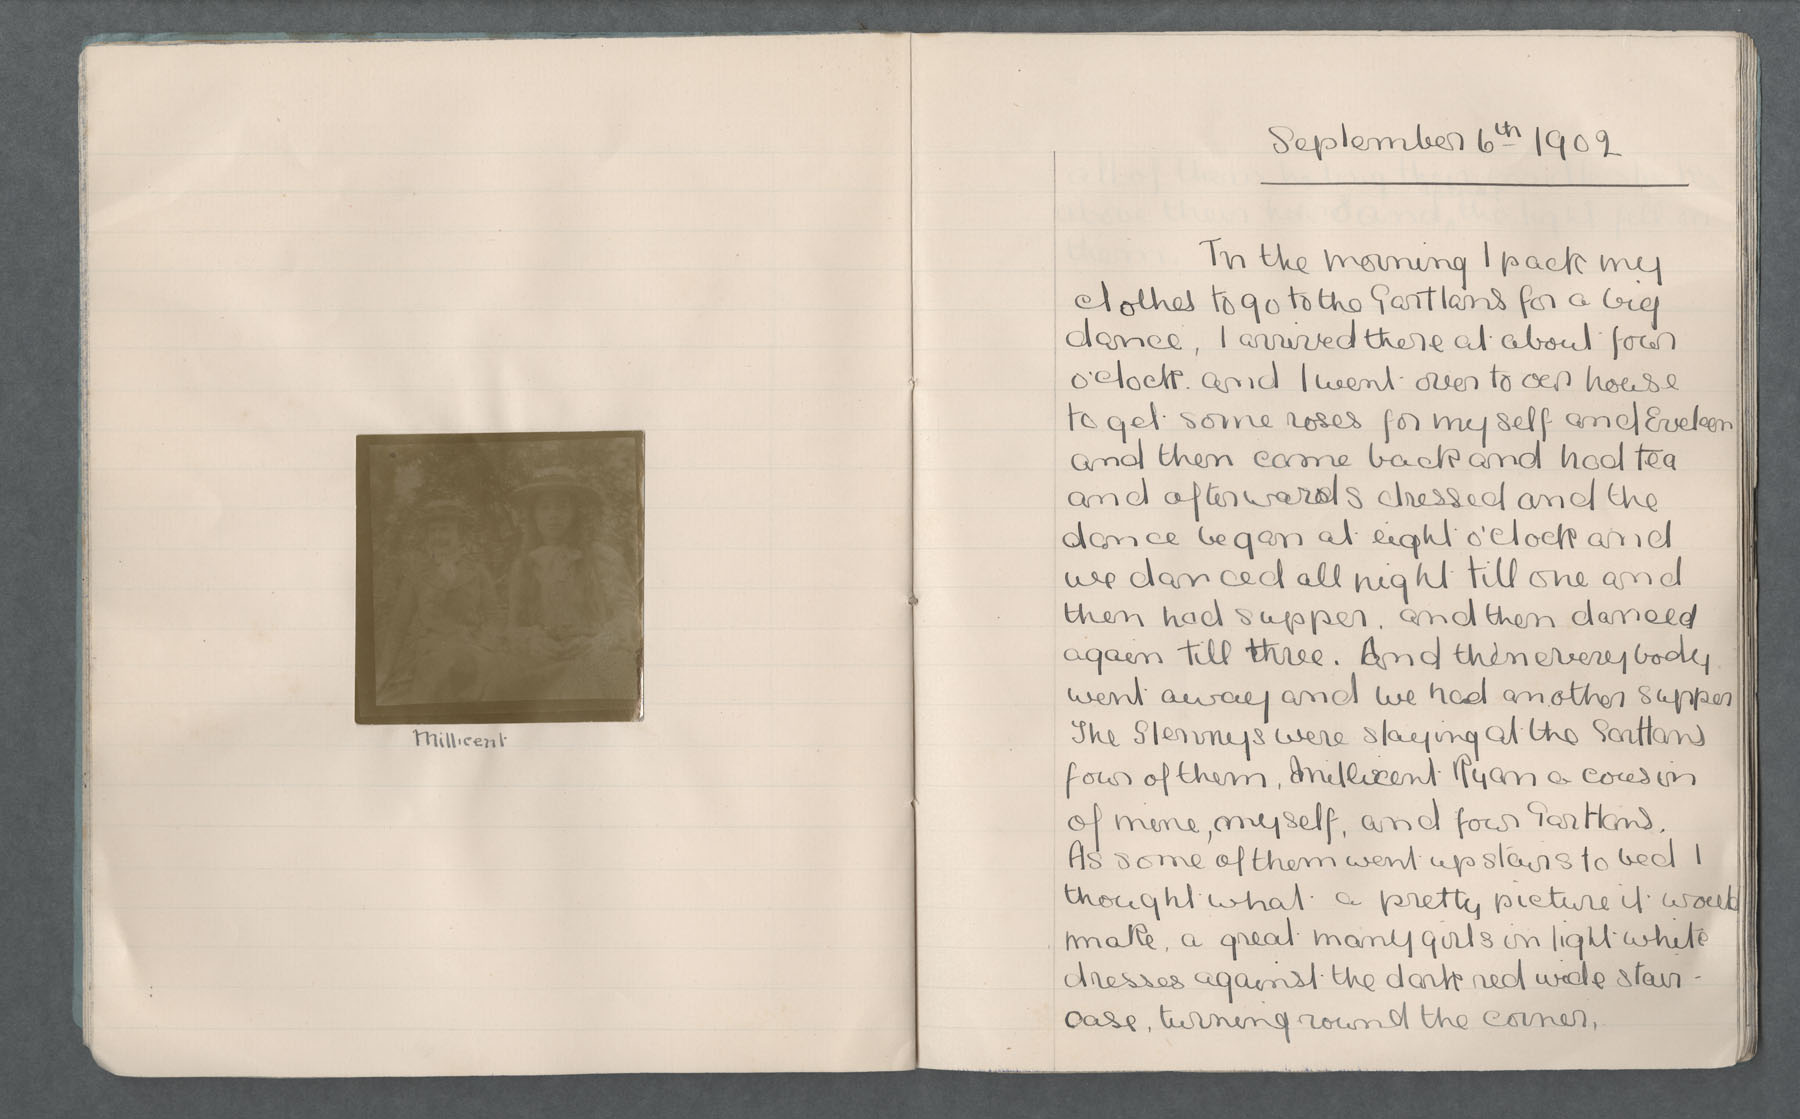 Millicent
September 6th 1902
In the morning I pack my
clothes to go to the Gartlans for a big
dance, I arrived there at about four
o'clock. and I went over to our house
to get some roses for myself and Eveleen
and then came back and had tea
and afterwards dressed and the
dance began at eight o'clock and
we danced all night till one and
then had supper. and then danced
again till three. And then everybody
went away and we had another supper
The Slennys were staying at the Gartlans
four of them, Millicent Ryan a cousin
of mine, myself, and four Gartlans.
As some of them went upstairs to bed I
thought what a pretty picture it would
make, a great many girls in light white
dresses against the dark red wide stair-
case, turning round the corner.